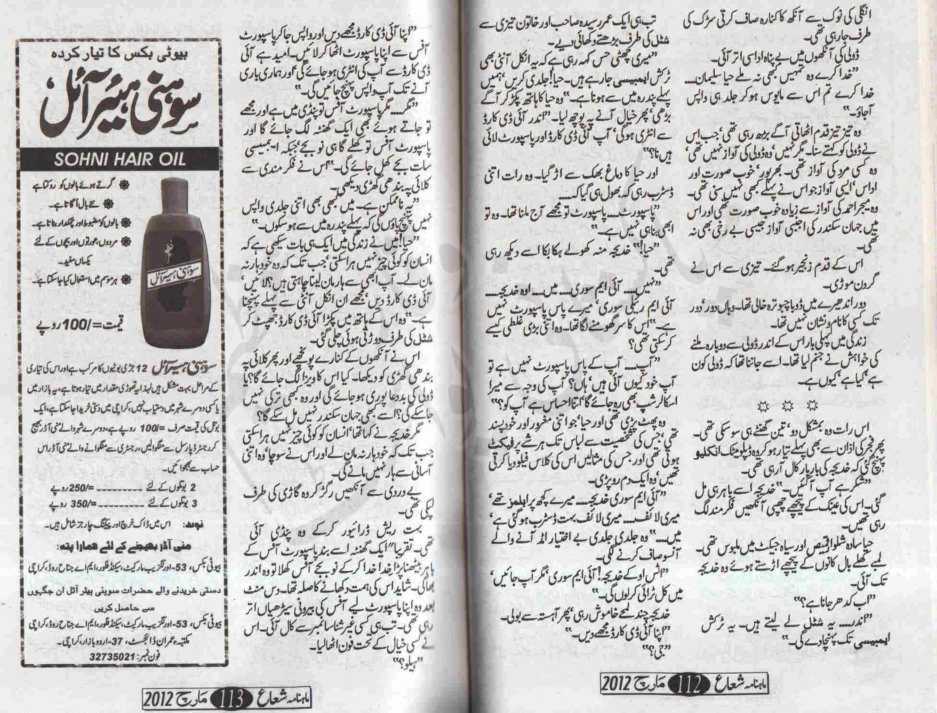 انگلی کی نوک سے آنکھ کا کنارہ صاف کرتی سڑک کی
طرف جا رہی تھی۔
ڈولی کی آنکھوں میں بے پناہ اداسی اتر آئی۔
"خدا کرے وہ تمہیں کبھی نہ ملے حیا سلیمان۔
خدا کرے تم اس سے مایوس ہو کر جلد ہی واپس
آجاؤ۔"
وہ تیز تیز قدم اٹھاتی آگے بڑھ رہی تھی جب اس
نے ڈولی کو کہتے سنا۔ مگر نہیں وہ ڈولی کی آواز نہیں تھی۔
وہ کسی مرد کی آواز تھی۔ بھرپور، خوب صورت اور
اداس، ایسی آواز جو اس نے پہلے کبھی نہیں سنی تھی۔
وہ میجر احمد کی آواز سے زیادہ خوب صورت تھی اور اس
میں جہان سکندر کی اجنبی آواز جیسی بے رخی بھی نہ
تھی۔
اس کے قدم زنجیر ہو گئے۔ تیزی سے اس نے
گردن موڑی۔
دور اندھیرے میں ڈوبا چبوترہ خالی تھا۔ وہاں دور دور
تک کسی کا نام و نشان نہیں تھا۔
زندگی میں پہلی بار اس کے اندر ڈولی سے دوبارہ ملنے
کی خواہش نے جنم لیا تھا۔ اسے جاننا تھا کہ ڈولی کون
ہے کیا ہے کیوں ہے۔
☼ ☼ ☼
اس رات وہ بمشکل دو، تین گھنٹے ہی سو سکی تھی۔
پھر فجر کی اذان سے بھی پہلے تیار ہو کر وہ ڈپلومیٹک انکلیو
پہنچ گئی کہ خدیجہ کی بار بار کال آ رہی تھی۔
"شکر ہے آپ آ گئیں۔" خدیجہ اسے باہر ہی مل
گئی۔ اس کی عینک کے پیچھے چھپی آنکھیں فکر مند لگ
رہی تھیں۔
حیا سادہ شلوار قمیص اور سیاہ جیکٹ میں ملبوس تھی۔
لمبے کھلے بال کانوں کے پیچھے اڑستے ہوئے وہ خدیجہ
تک آئی۔
"اب کدھر جانا ہے؟"
"اندر۔ یہ شٹل لے لیتے ہیں۔ یہ ٹرکش
ایمبیسی تک پہنچا دے گی۔"
تب ہی ایک عمر رسیدہ صاحب اور خاتون تیزی سے
شٹل کی طرف بڑھتے دکھائی دیے۔
"میری چھٹی حس کہہ رہی ہے کہ یہ انکل آنٹی بھی
ٹرکش ایمبیسی جا رہے ہیں۔ حیا! جلدی کریں، ہمیں
پہلے پندرہ میں سے ہونا ہے۔" وہ حیا کا ہاتھ پکڑ کر آگے
بڑھی، پھر خیال آنے پہ پوچھ لیا۔ "اندر آئی ڈی کارڈ
سے انٹری ہو گی، آپ آئی ڈی کارڈ اور پاسپورٹ لائی
ہیں نا؟"
اور حیا کا دماغ بھک سے اڑ گیا۔ وہ رات اتنی
ڈسٹرب رہی کہ بھول ہی گیا کہ۔
"پاسپورٹ۔ پاسپورٹ تو مجھے آج ملنا تھا۔ وہ تو
ابھی بنا ہی نہیں ہے۔"
"حیا!" خدیجہ منہ کھولے ہکا بکا اسے دیکھ رہی
تھی۔
"نہیں۔ آئی ایم سوری۔ میں۔ اوہ خدیجہ۔
آئی ایم رئیلی سوری، میرے پاس پاسپورٹ نہیں
ہے۔" اس کا سر گھومنے لگا تھا۔ وہ اتنی بڑی غلطی کیسے
کر سکتی تھی؟
"آپ۔ آپ کے پاس پاسپورٹ نہیں ہے تو
آپ خود کیوں آئی ہیں، ہاں؟ آپ کی وجہ سے میرا
اسکالرشپ بھی رہ جائے گا، اتنا احساس ہے آپ کو؟"
وہ پھٹ پڑی تھی اور حیا جو اتنی مغرور اور خود پسند
تھی، جس کی شخصیت سے لباس تک ہر شے پرفیکٹ
ہوتی تھی اور جس کی مثالیں اس کی کلاس فیلوز دیا کرتی
تھیں وہ ایک دم رو پڑی۔
"آئی ایم سوری خدیجہ۔ میرے کچھ پرابلمز تھے،
میری لائف۔ میری لائف بہت ڈسٹرب ہو گئی ہے
میں۔" وہ جلدی جلدی بے اختیار امڈ آنے والے
آنسو صاف کرنے لگی۔
"اٹس اوکے خدیجہ! آئی ایم سوری، مگر آپ جائیں
میں کل ٹرائی کر لوں گی۔"
خدیجہ چند لمحے خاموش رہی، پھر آہستہ سے بولی۔
"اپنا آئی ڈی کارڈ مجھے دیں۔"
"جی؟"
ماہنامہ شعاع 112 مارچ 2012
"اپنا آئی ڈی کارڈ مجھے دیں اور واپس جا کر پاسپورٹ
آفس سے اپنا پاسپورٹ اٹھا کر لائیں۔ امید ہے آئی
ڈی کارڈ سے آپ کی انٹری ہو جائے گی اور ہماری باری
آنے تک آپ واپس پہنچ جائیں گی۔"
"مگر۔ مگر پاسپورٹ آفس تو پنڈی میں ہے اور مجھے
تو جاتے ہوئے بھی ایک گھنٹہ لگ جائے گا اور
پاسپورٹ آفس تو کھلے گا ہی نو بجے، جبکہ ایمبیسی
سات بجے کھل جائے گی۔" اس نے فکر مندی سے
کلائی پہ بندھی گھڑی دیکھی۔
"یہ ناممکن ہے۔ میں کبھی بھی اتنی جلدی واپس
نہیں پہنچ پاؤں گی کہ پہلے پندرہ میں سے ہو سکوں۔"
"حیا! میں نے زندگی میں ایک ہی بات سیکھی ہے کہ
انسان کو کوئی چیز نہیں ہرا سکتی، جب تک کہ وہ خود ہار نہ
مان لے۔ آپ ابھی سے ہار مان لینا چاہتی ہیں؟ لائیں
آئی ڈی کارڈ دیں، مجھے ان انکل آنٹی سے پہلے پہنچنا
ہے۔" وہ اس کے ہاتھ میں پکڑا آئی ڈی کارڈ جھپٹ کر
شٹل کی طرف دوڑتی ہوئی چلی گئی۔
اس نے آنکھوں کے کنارے پونچھے اور پھر کلائی پہ
بندھی گھڑی کو دیکھا۔ کیا اس کا ویزا لگ جائے گا؟ یا
ڈولی کی بددعا پوری ہو جائے گی اور وہ کبھی ترکی نہیں
جا سکے گی؟ اسے کبھی جہان سکندر نہیں مل سکے گا؟
مگر خدیجہ نے کہا تھا، انسان کو کوئی چیز نہیں ہرا سکتی
جب تک کہ خود ہار نہ مان لے اور اس نے سوچا، وہ اتنی
آسانی سے ہار نہیں مانے گی۔
بے دردی سے آنکھیں رگڑ کر وہ گاڑی کی طرف
لپکی تھی۔
بہت ریش ڈرائیور کر کے وہ پنڈی آئی
تھی۔ تقریباً ایک گھنٹہ اسے بند پاسپورٹ آفس کے
باہر بیٹھنا پڑا خدا خدا کر کے نو بجے آفس کھلا تو وہ اندر
بھاگی۔ شاید اس کی ہمت دکھانے کا صلہ تھا۔ دس منٹ
بعد وہ اپنا پاسپورٹ لیے آفس کی بیرونی سیڑھیاں اتر
رہی تھی۔ تب ہی کسی غیر شناسا نمبر سے کال آئی۔ اس
نے کسی خیال کے تحت فون اٹھا لیا۔
"ہیلو؟"
ماہنامہ شعاع 113 مارچ 2012
بیوٹی بکس کا تیار کردہ
سوہنی ہیئر آئل
SOHNI HAIR OIL
گرتے ہوئے بالوں کو روکتا ہے
نئے بال اگاتا ہے۔
بالوں کو مضبوط اور چمکدار بناتا ہے۔
مردوں، عورتوں اور بچوں کے لئے
یکساں مفید۔
ہر موسم میں استعمال کیا جا سکتا ہے۔
سوہنی ہیئر آئل
قیمت =/100 روپے
سوہنی ہیئر آئل 12 جڑی بوٹیوں کا مرکب ہے اور اس کی تیاری
کے مراحل بہت مشکل ہیں لہذا یہ تھوڑی مقدار میں تیار ہوتا ہے، یہ بازار میں
یا کسی دوسرے شہر میں دستیاب نہیں، کراچی میں دستی خریدا جا سکتا ہے، ایک
بوتل کی قیمت صرف =/100 روپے ہے، دوسرے شہر والے منی آڈر بھیج
کر رجسٹرڈ پارسل سے منگوا لیں، رجسٹری سے منگوانے والے منی آڈر اس
حساب سے بھجوائیں۔
2 بوتلوں کے لئے ---------- =/250 روپے
3 بوتلوں کے لئے ---------- =/350 روپے
نوٹ: اس میں ڈاک خرچ اور پیکنگ چارجز شامل ہیں۔
منی آڈر بھیجنے کے لئے ہمارا پتہ:
بیوٹی بکس، 53-اورنگزیب مارکیٹ، سیکنڈ فلور، ایم اے جناح روڈ، کراچی
دستی خریدنے والے حضرات سوہنی ہیئر آئل ان جگہوں
سے حاصل کریں
بیوٹی بکس، 53-اورنگزیب مارکیٹ، سیکنڈ فلور، ایم اے جناح روڈ، کراچی
مکتبہ عمران ڈائجسٹ، 37-اردو بازار، کراچی۔
فون نمبر: 32735021